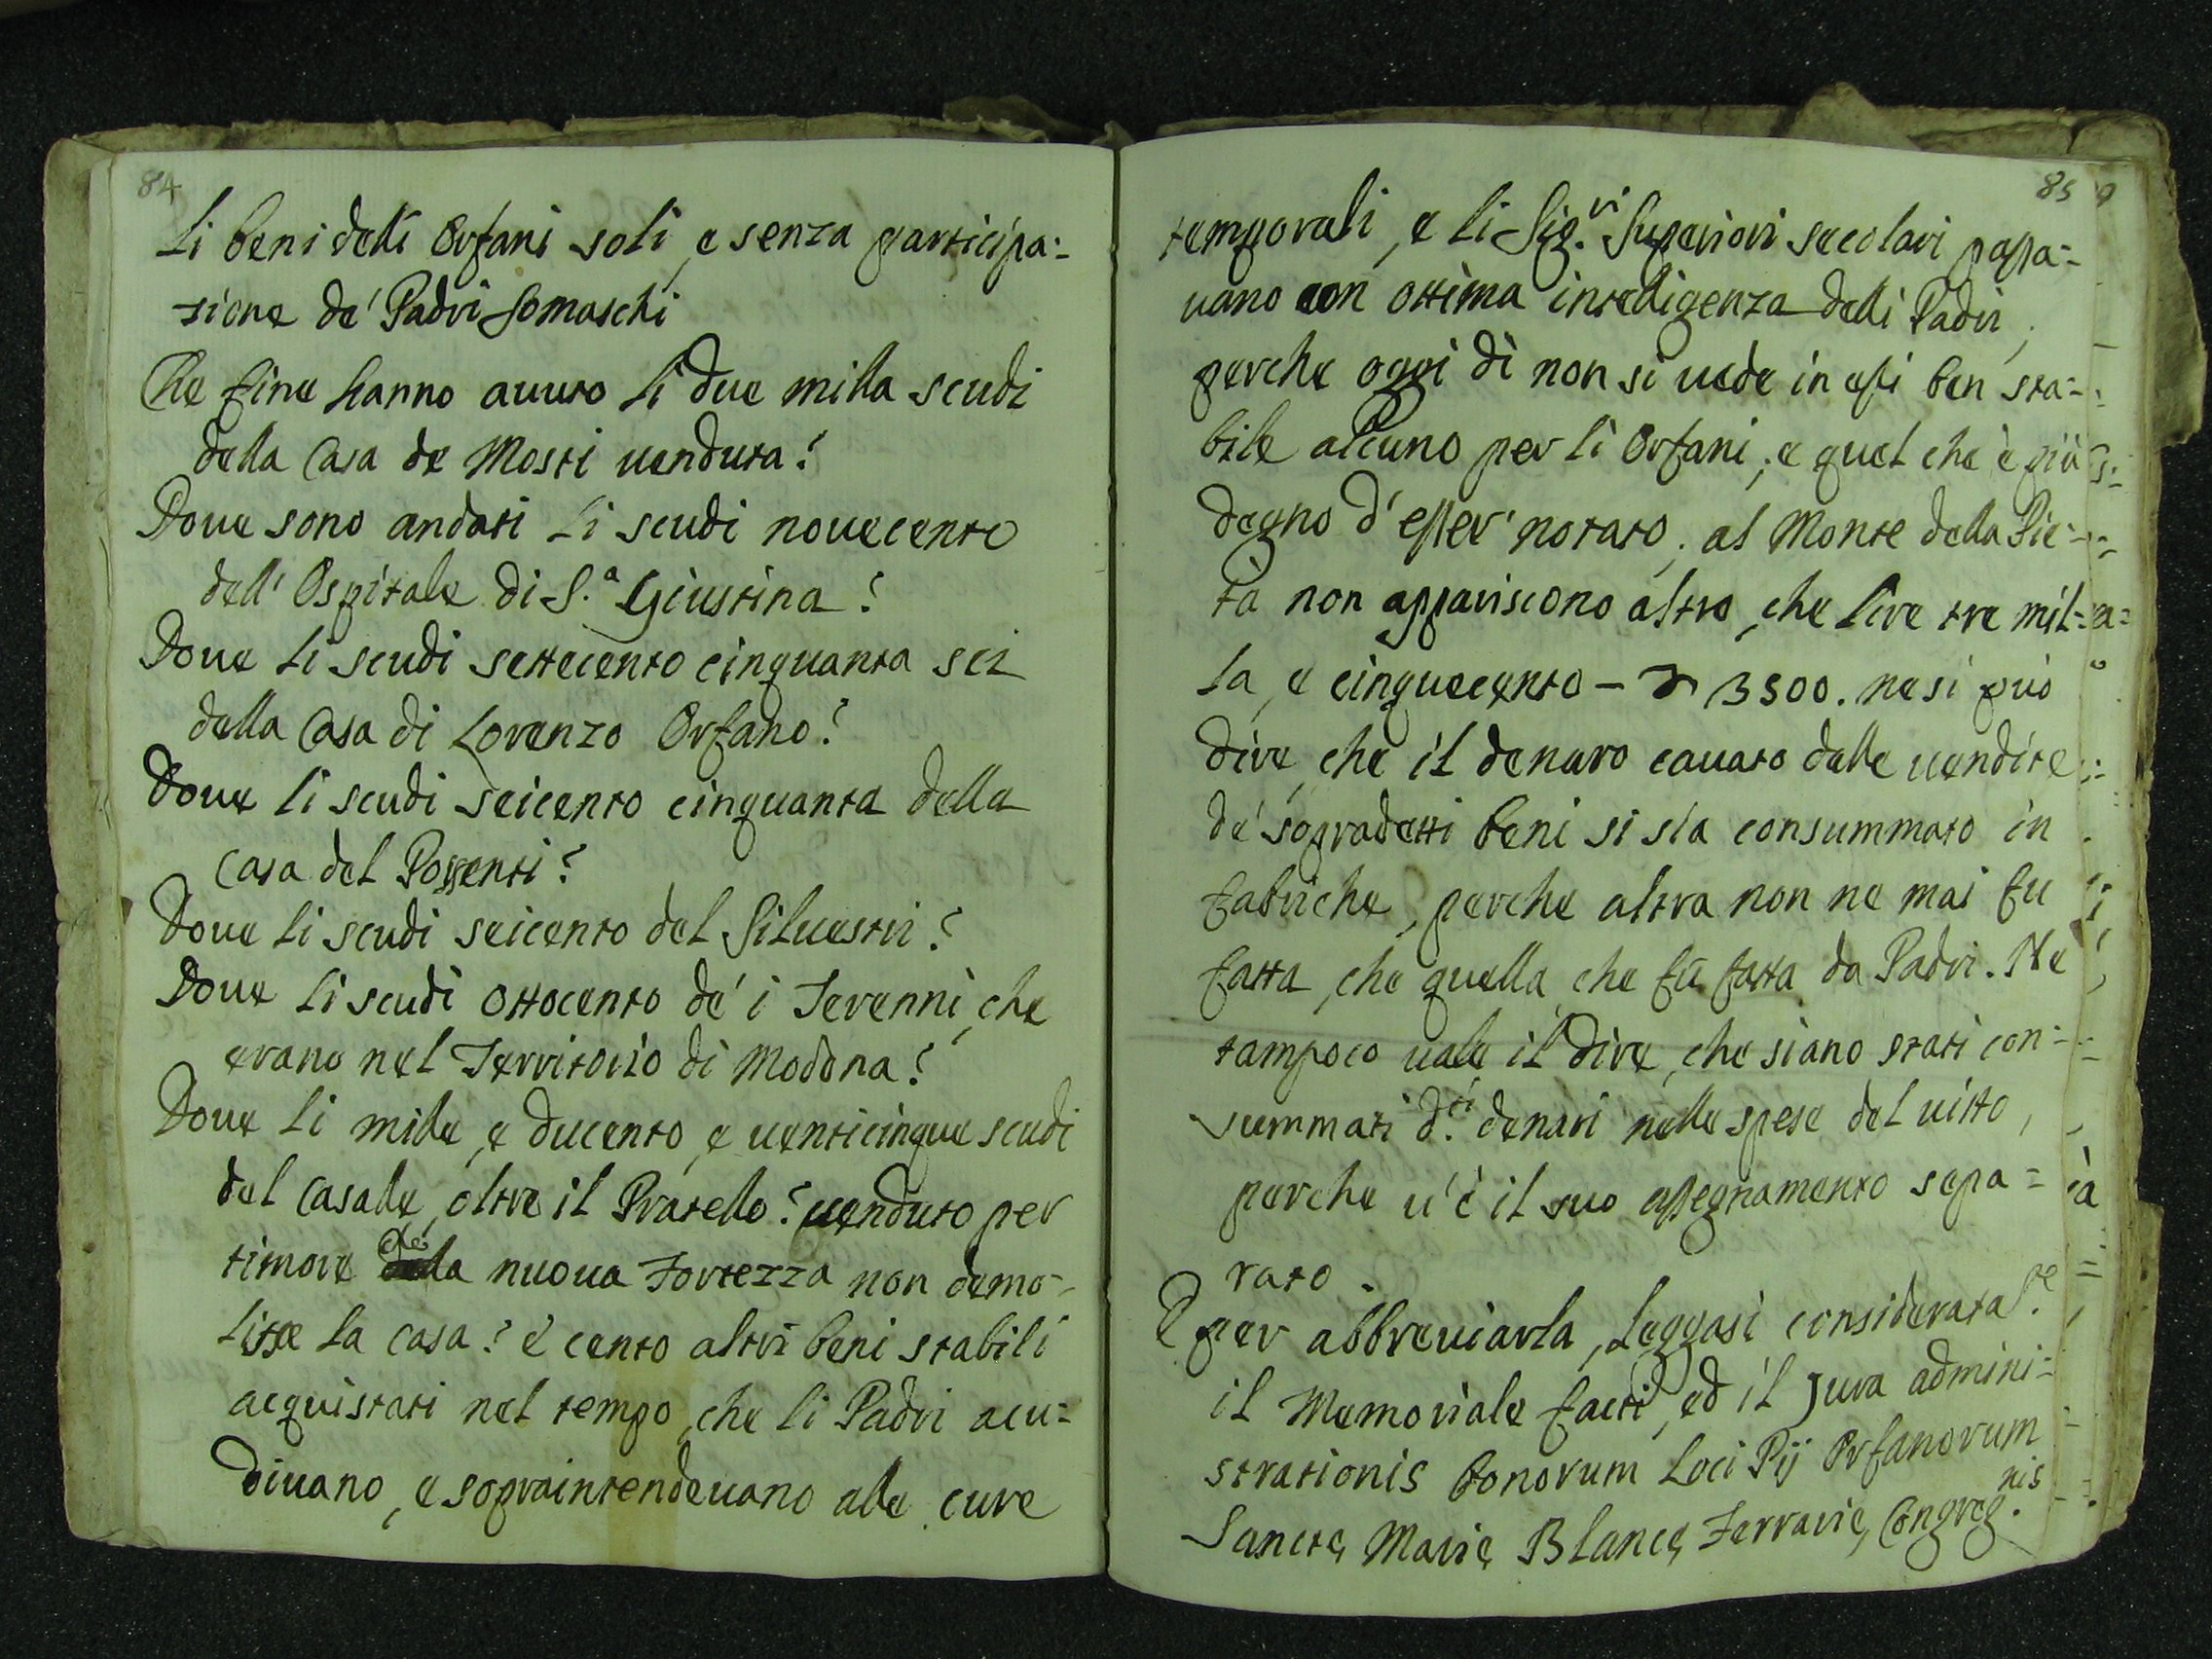 84
Li beni delli Orfani soli, e senza participa=
zione de' Padri Somaschi
Che fine hanno auuto li due milla scudi
della Casa de Mosti uenduta?
Doue sono andati Li scudi nouecento
dell' Ospitale di S.a Giustina?
Doue li scudi settecento cinquanta sei
della Casa di Lorenzo Orfano?
Doue li scudi seicento cinquanta della
Casa del Possenti?
Doue li scudi seicento del Siluestri?
Doue li scudi ottocento de' i Terenni, che
erano nel Territorio di Modona?
Doue li mille, e ducento, e uenticinque scudi
del Casale, oltre il Pratello? uenduto per
timore de la nuoua Fortezza non demo-
lisse la casa? e cento altri beni stabili
acquistati nel tempo, che li Padri acu=
diuano, e sopraintendeuano alle cure
85
temporali, e li Sig.ri Superiori secolari passa=
uano con ottima intelligenza delli Padri,
perche oggi dì non si uede in essi ben sta=
bile alcuno per li Orfani; e quel che è più
degno d'esser' notato, al Monte della Pie=
tà non appariscono altro, che lire tre mil=
la, e cinquecento – 3500. ne si può
dire, che il denaro cauato dalle uendite
de' sopradetti beni si sia consummato in
fabriche, perche altra non ne mai fu
fatta, che quella, che fù fatta da Padri. Ne
tampoco uale il dire, che siano stati con=
summati d.ti denari nelle spese del uitto,
perche u'è il suo assegnamento sepa=
rato.
E per abbreuiarla, Leggasi considerata.te
il Memoriale facti, ed il Jura admini=
strationis bonorum Loci Pij Orfanorum
Sanctę Marię Blancę Ferrarię, Congreg.nis